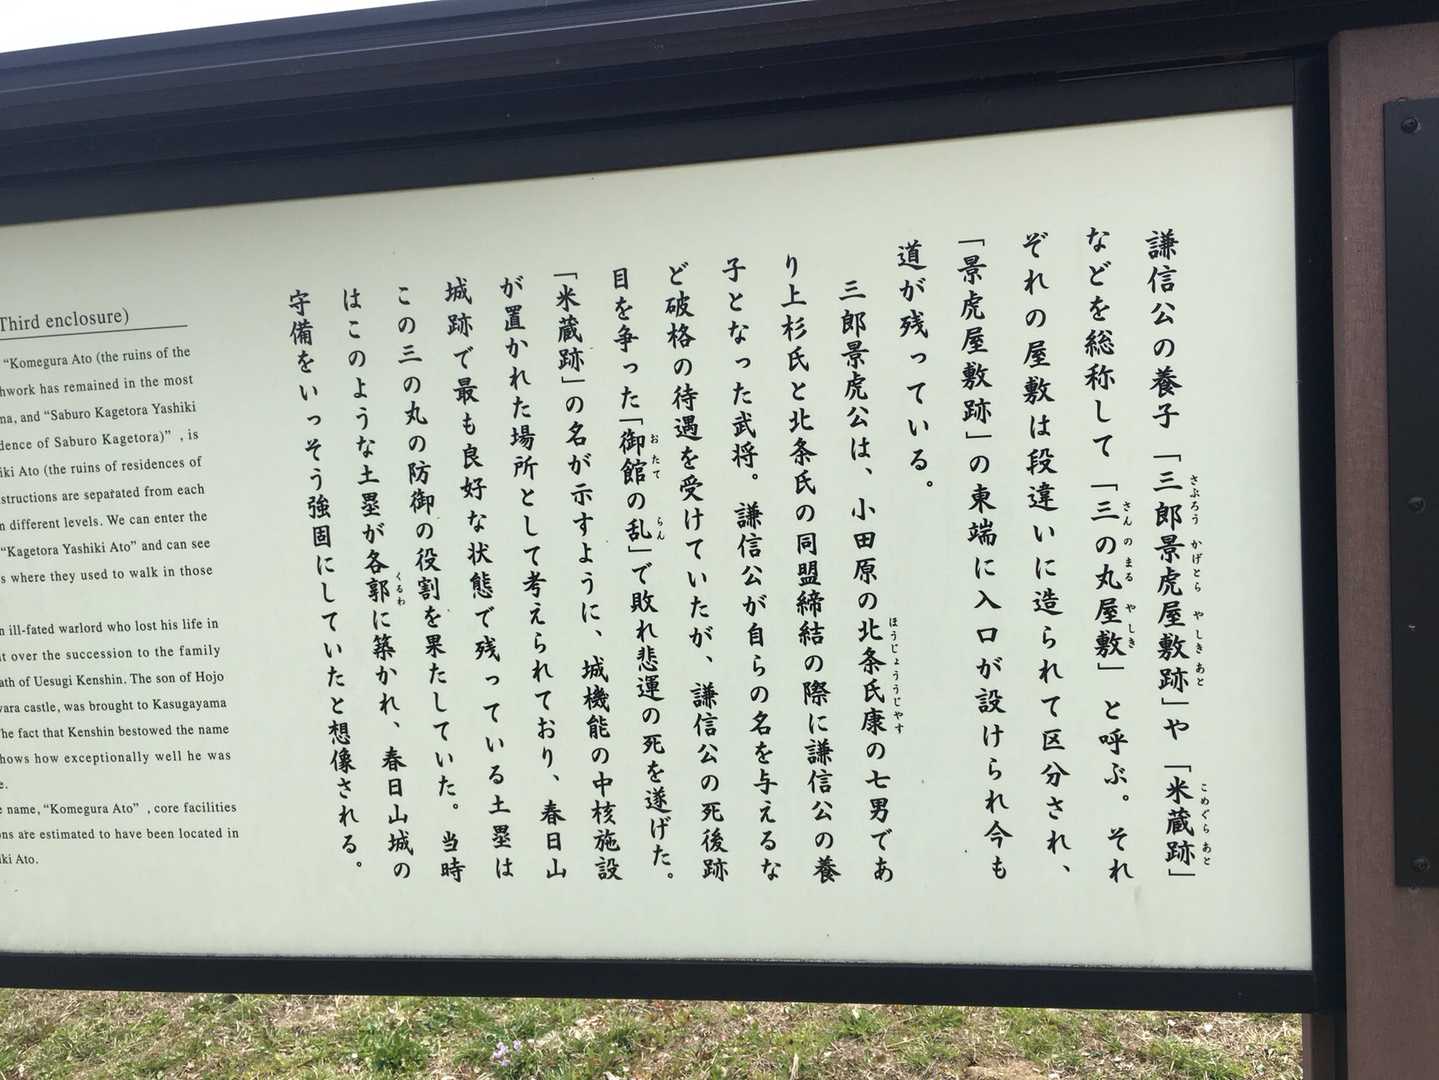 謙信公の養子「三郎景虎屋敷跡」や「米蔵跡」
などを総称して「三の丸屋敷」と呼ぶ。それ
ぞれの屋敷は段違いに造られて区分され、
「景虎屋敷跡」の東端に入口が設けられ今も
道が残っている。
三郎景虎公は、小田原の北条氏康の七男であ
り上杉氏と北条氏の同盟締結の際に謙信公の養
子となった武将。謙信公が自らの名を与えるな
ど破格の待遇を受けていたが、謙信公の死後跡
目を争った「御館の乱」で敗れ悲運の死を遂げた。
「米蔵跡」の名が示すように、城機能の中核施設
が置かれた場所として考えられており、春日山
城跡で最も良好な状態で残っている土塁は
この三の丸の防御の役割を果たしていた。当時
はこのような土塁が各郭に築かれ、春日山城の
守備をいっそう強固にしていたと想像される。
さぶろう かげとら やしき あと
こめぐら あと
さんのまる やしき
ほうじょううじやす
おたて
らん
くるわ
Third enclosure)
“Komegura Ato (the ruins of the
hwork has remained in the most
na, and “Saburo Kagetora Yashiki
dence of Saburo Kagetora)” , is
iki Ato (the ruins of residences of
structions are separated from each
n different levels. We can enter the
“Kagetora Yashiki Ato” and can see
s where they used to walk in those
n ill-fated warlord who lost his life in
t over the succession to the family
ath of Uesugi Kenshin. The son of Hojo
wara castle, was brought to Kasugayama
he fact that Kenshin bestowed the name
hows how exceptionally well he was
e.
e name, “Komegura Ato” , core facilities
ons are estimated to have been located in
ki Ato.